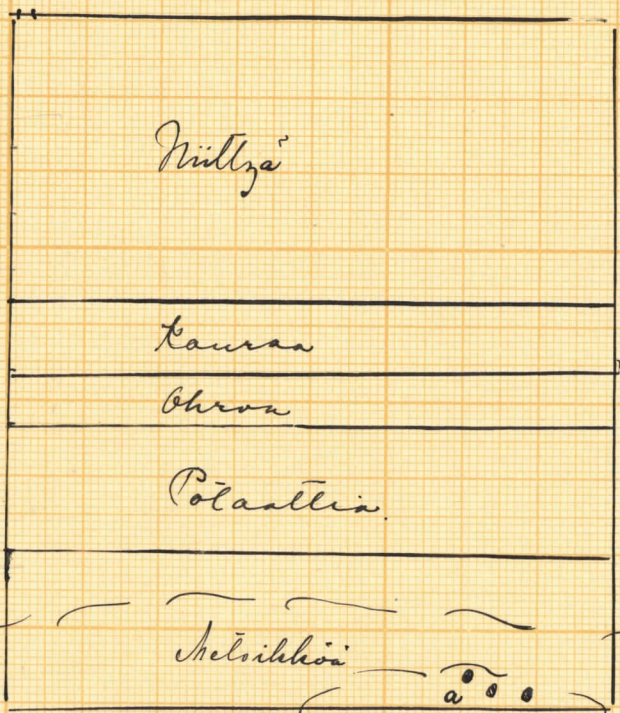 Niittyä
Kauraa
Ohraa
Potaattia.
Metsikköä
a